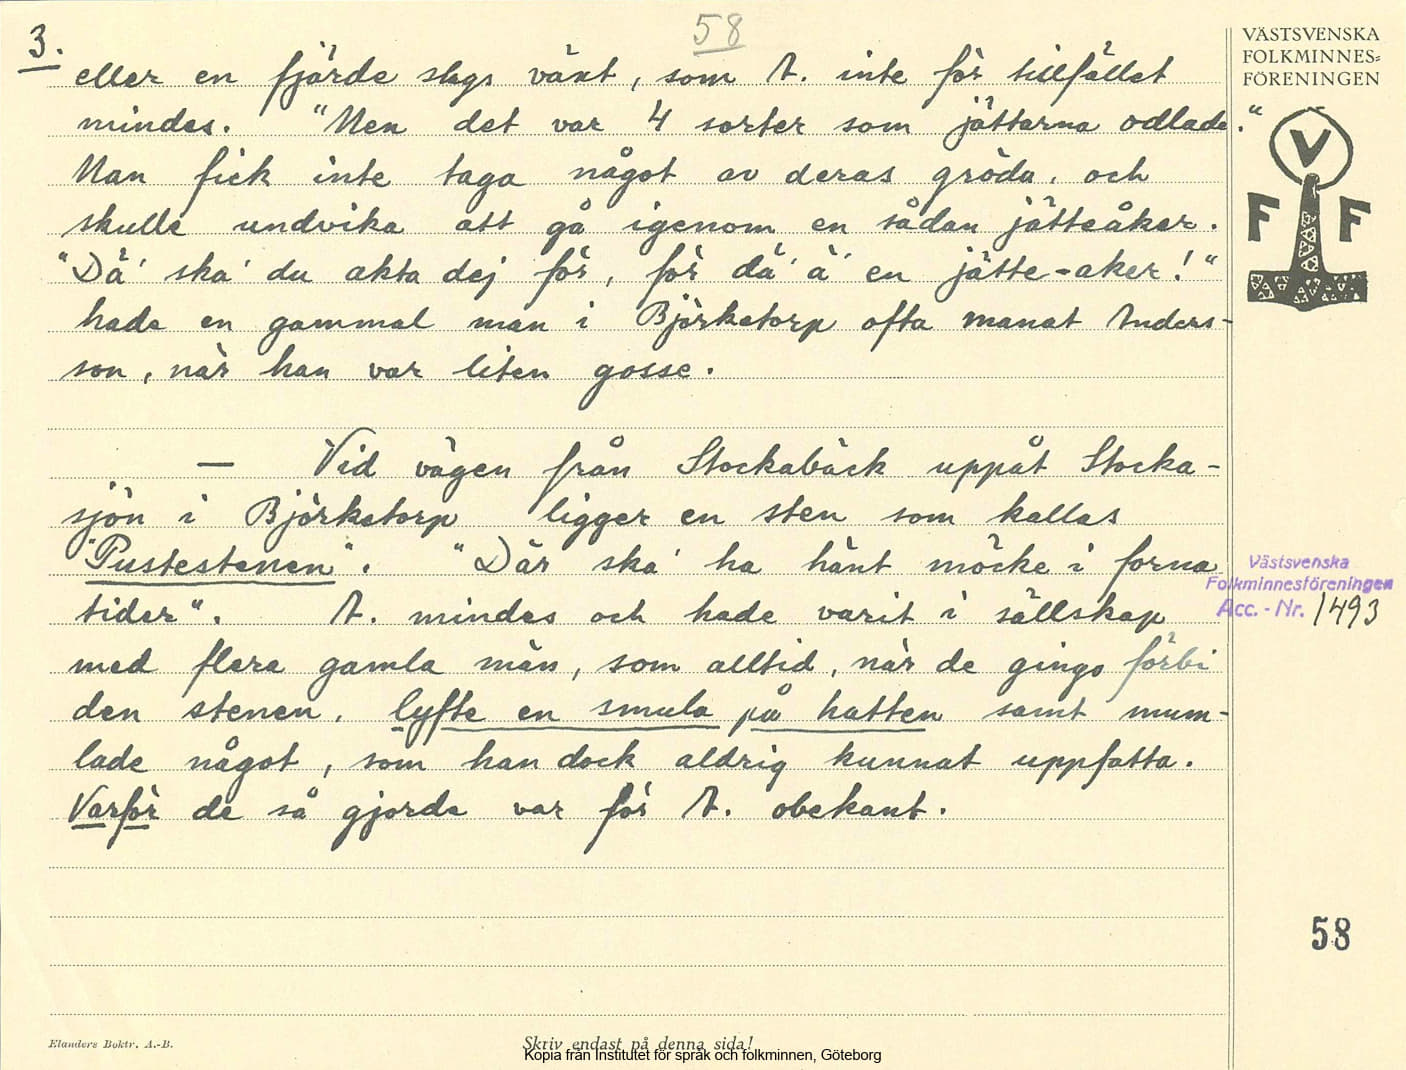 3.
58
eller en fjärde slags växt, som A. inte för tillfället
mindes. "Men det var 4 sorter som jättarna odlade."
Man fick inte taga något av deras gröda, och
skulle undvika att gå igenom en sådan jätteåker.
"Dä' ska' du akta dej för, för dä' ä' en jätte-aker!"
hade en gammal man i Björketorp ofta manat Anders-
son, när han var liten gosse.
— Vid vägen från Stockabäck uppåt Stocka-
sjön i Björketorp ligger en sten som kallas
"Pustestenen". "Där ska' ha hänt möcke i forna
tider". A. mindes och hade varit i sällskap
med flera gamla män, som alltid, när de gingo förbi
den stenen, lyfte en smula på hatten samt mum-
lade något, som han dock aldrig kunnat uppfatta.
Varför de så gjorde var för A. obekant.
VÄSTSVENSKA
FOLKMINNES=
FÖRENINGEN
V
F F
Västsvenska
Folkminnesföreningen
Acc. - Nr. 1493
58
Elanders Boktr. A.-B.
Skriv endast på denna sida!
Kopia från Institutet för språk och folkminnen, Göteborg